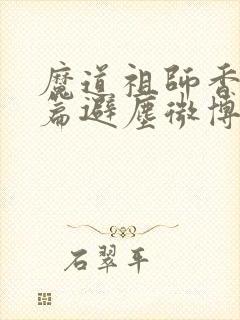 魔道祖師香
篇避塵微博
石翠平